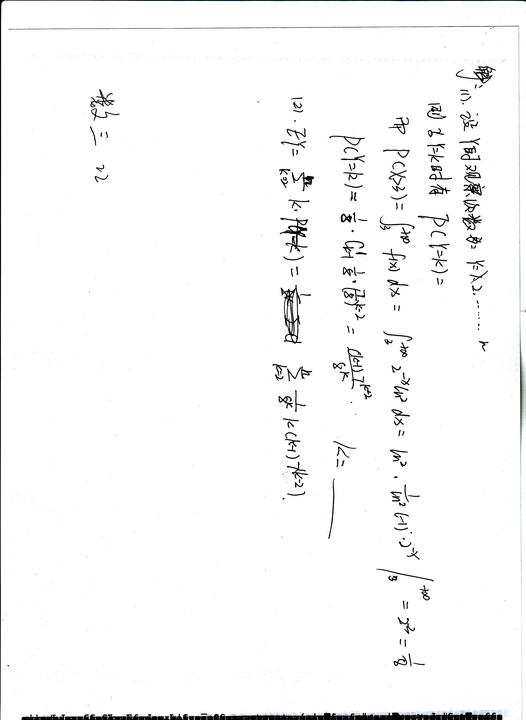 解: (1). 设 Y的观察次数为 Y=1,2,........ n
则当Y=k时有 P(Y=k)=
而 P(X>3) = ∫₃^{+∞} f(x) dx = ∫₃^{+∞} 2^{-x} ln2 dx = ln2 · 1/ln2 (-1) · 2^{-x} |₃^{+∞} = 2^{-3} = 1/8
P(Y=k) = 1/8 · C_{k-1}^{1} 1/8 · (7/8)^{k-2} = (k-1)7^{k-2}/8^k . k=
(2). EY = Σ_{k=2}^{n} k · P(Y=k) = Σ_{k=2}^{n} 1/8^k k(k-1)7^{k-2}.
数三 22